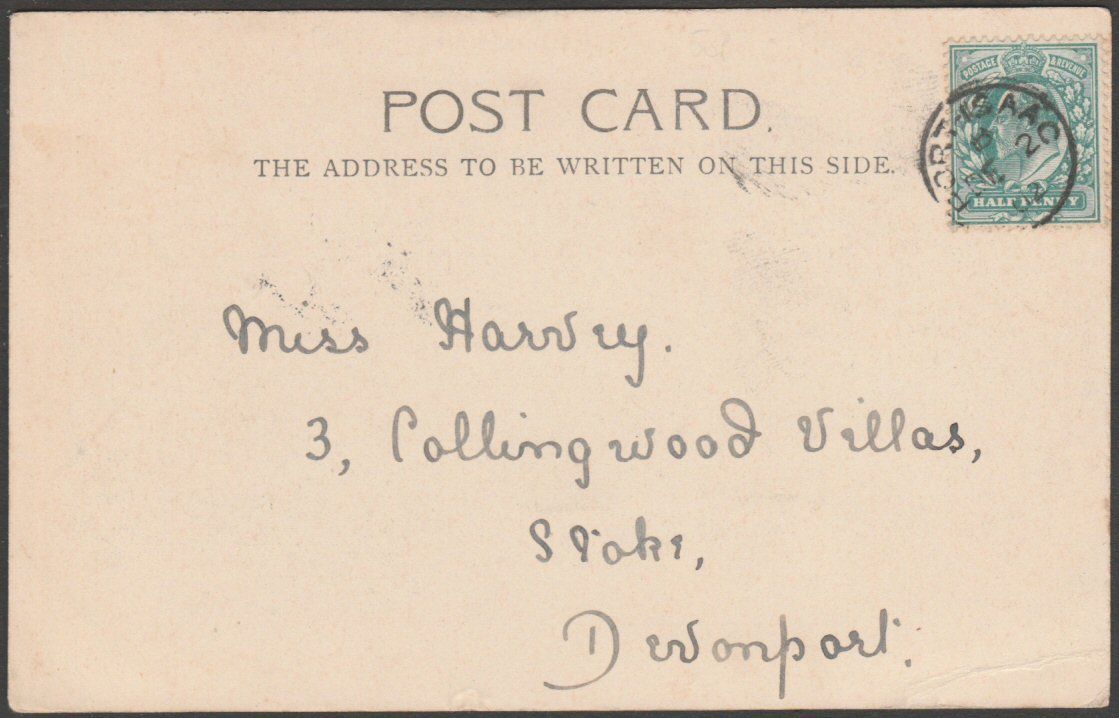 POST CARD.
THE ADDRESS TO BE WRITTEN ON THIS SIDE.
POSTAGE & REVENUE
HALF PENNY
PORT-ISAAC
Miss Harvey.
3, Collingwood Villas,
Stoke,
Devonport.